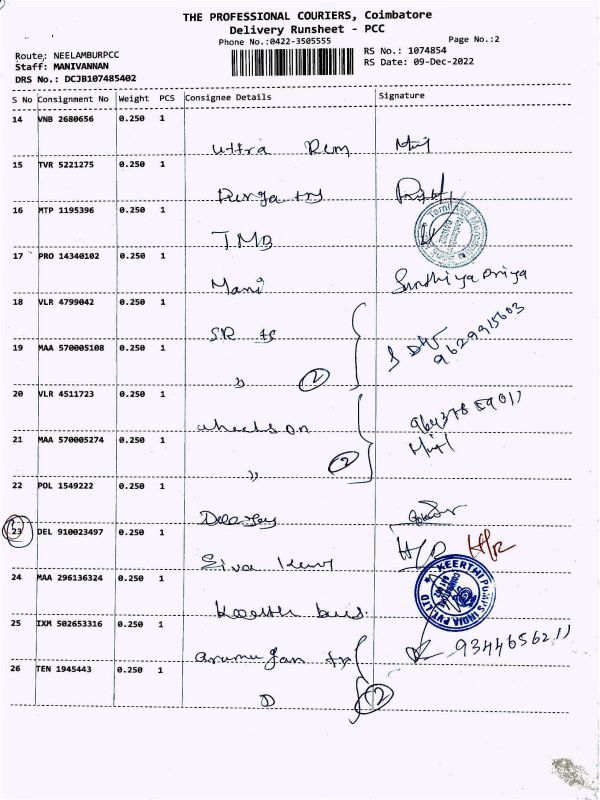 THE PROFESSIONAL COURIERS, Coimbatore
Delivery Runsheet - PCC
Phone No.:0422-3505555
Page No.:2
Route: NEELAMBURPCC
RS No.: 1074854
Staff: MANIVANNAN
RS Date: 09-Dec-2022
DRS No.: DCJB107485402
S No Consignment No Weight PCS Consignee Details Signature
14 VNB 2680656 0.250 1
uttra
15 TVR 5221275 0.250 1
Durga
16 MTP 1195396 0.250 1
TMB
17 PRO 14340102 0.250 1
Mani Sandhiya priya
18 VLR 4799042 0.250 1
SR
9629915603
19 MAA 570005108 0.250 1
" 2
20 VLR 4511723 0.250 1
wheels on
21 MAA 570005274 0.250 1
" 2
22 POL 1549222 0.250 1
23 DEL 910023497 0.250 1
Siva H/R
24 MAA 296136324 0.250 1
KEERTHI PUMPS INDIA PVT LTD
25 IXM 502653316 0.250 1
arumugan 9344656211
26 TEN 1945443 0.250 1
2